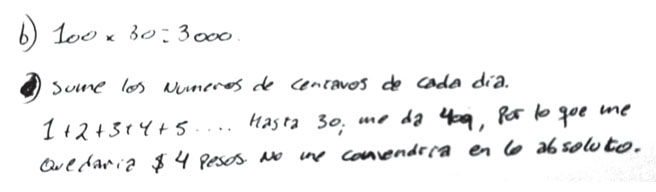 b) 100 x 30 = 3000.
Sume los Numeros de centavos de cada dia.
1+2+3+4+5.... Hasta 30; me da 409, Por lo que me
Quedaria $ 4 Pesos. No me convendria en lo absoluto.